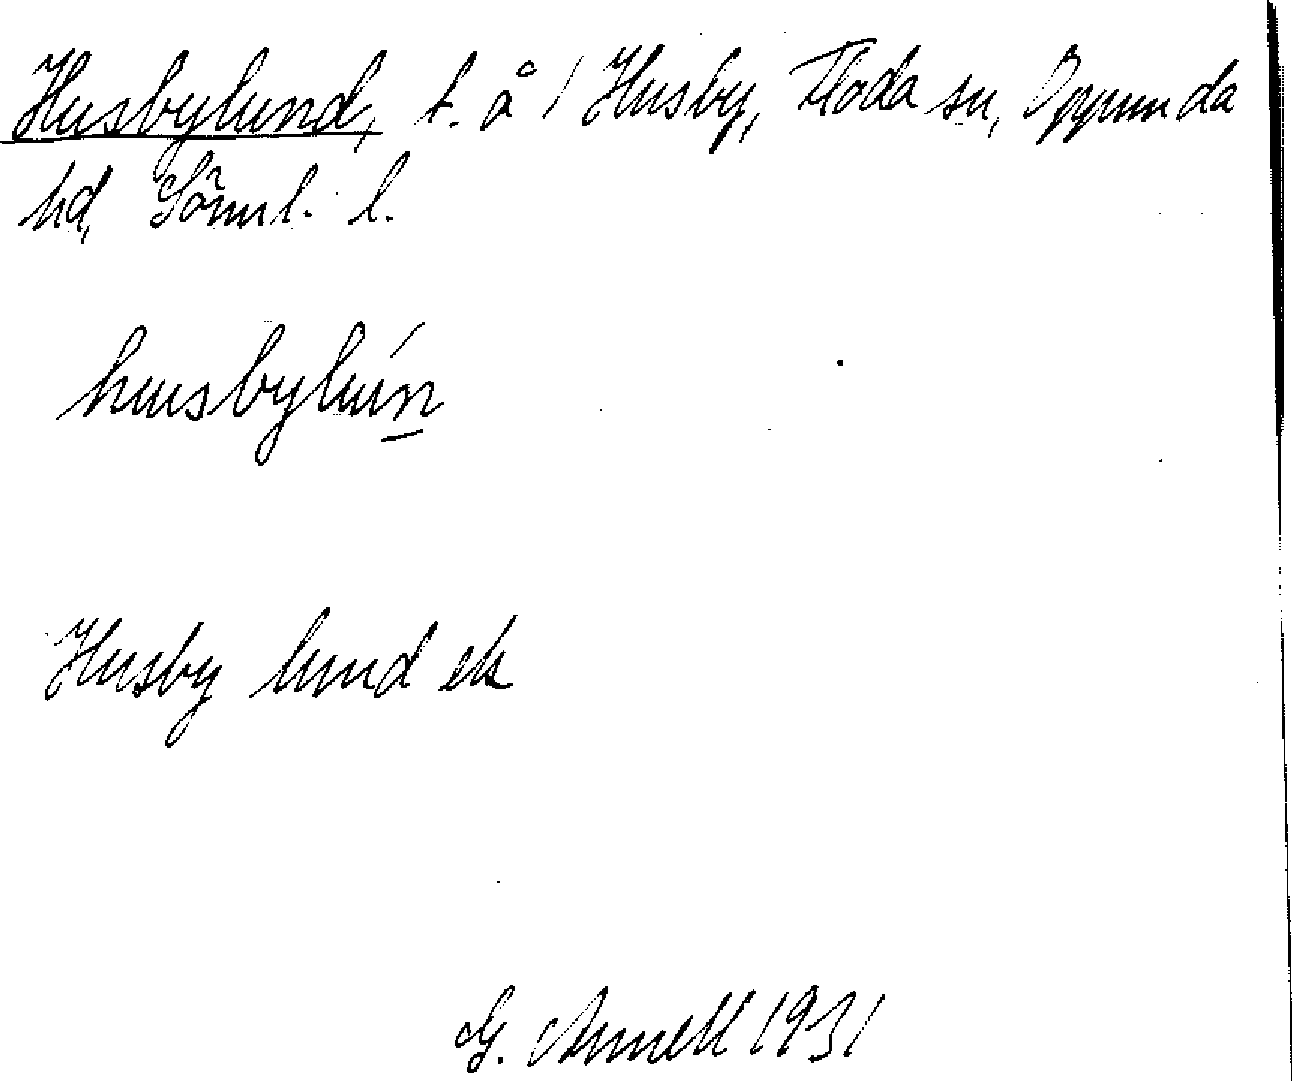 Husbylund, t. å 1 Husby, Floda sn, Oppunda
hd, Söml. l.
husbylún
Husby lund ek
G. Annell 1931